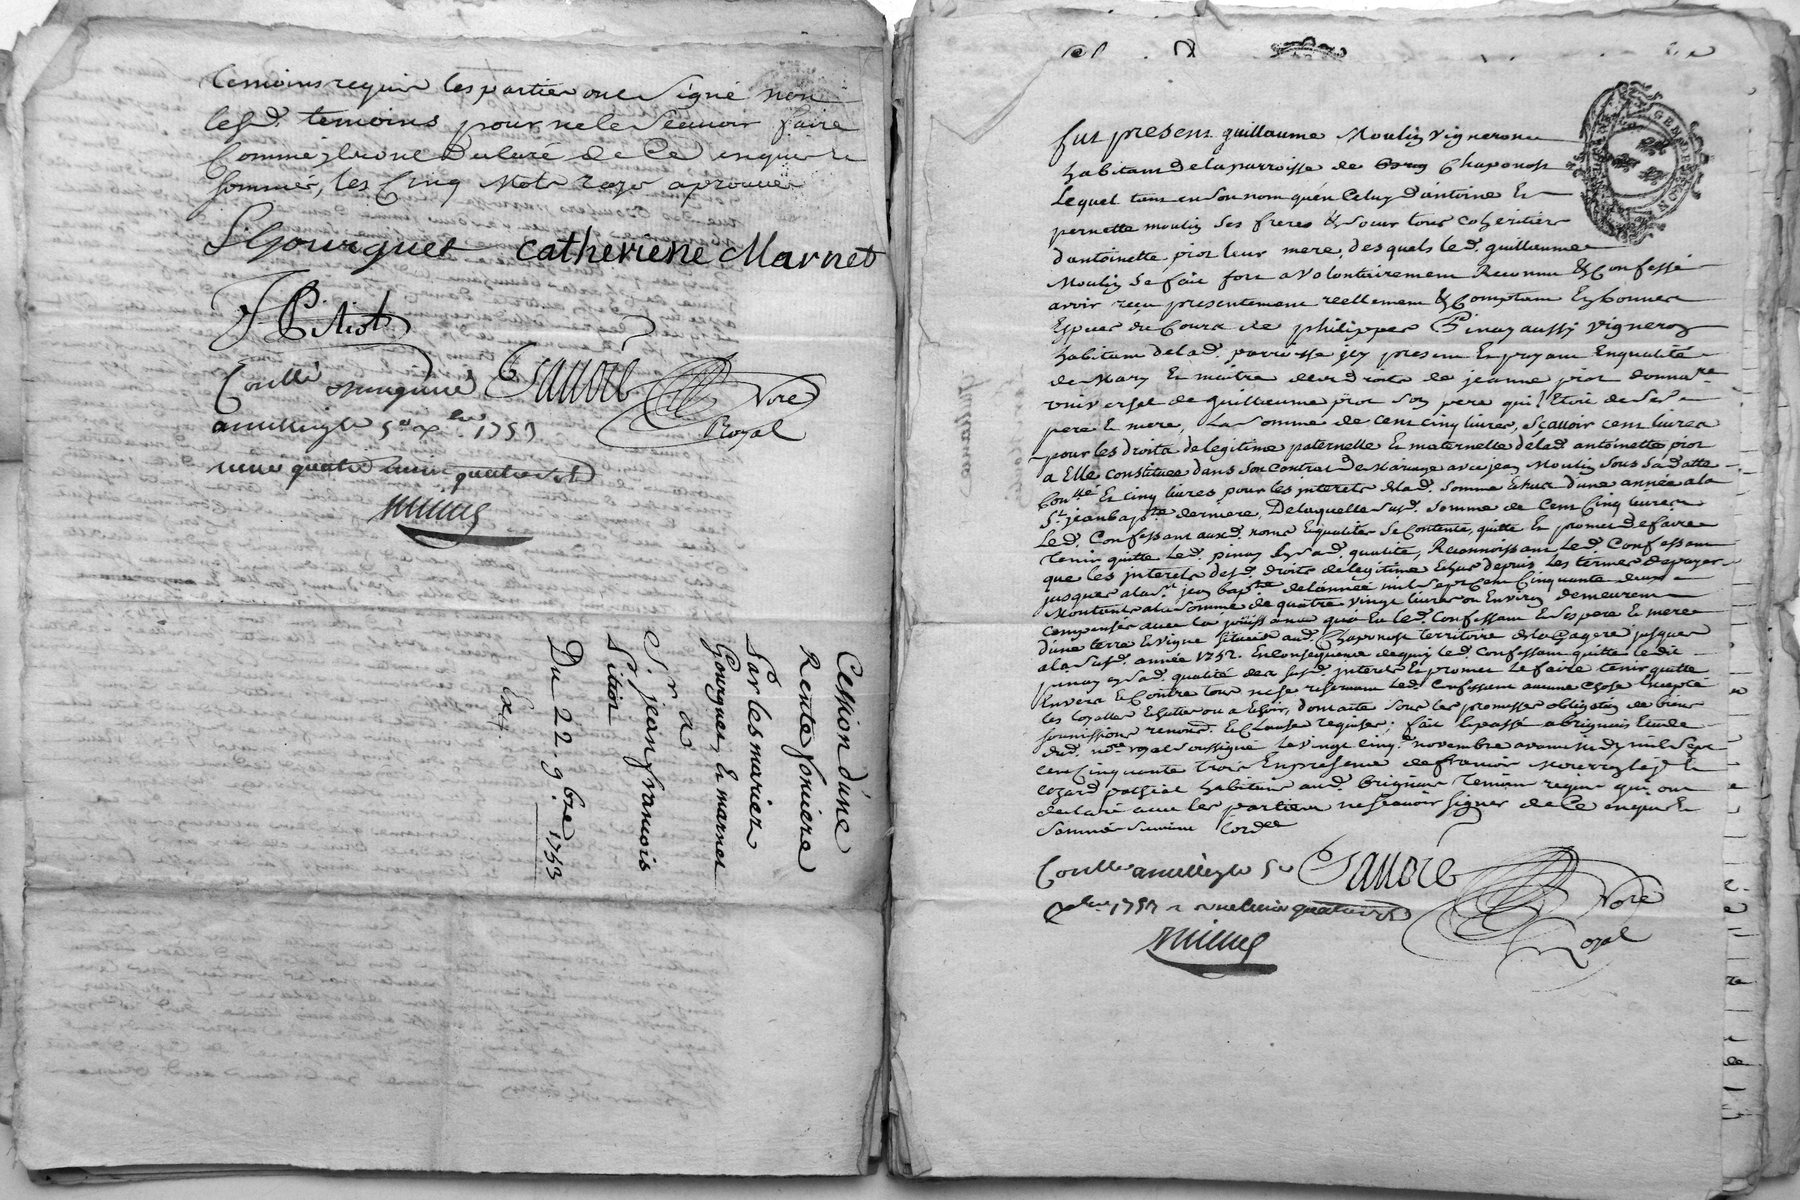 temoins requis les parties ont signé non
lesd. temoins pour ne le sçauoir faire
comme ils ont declaré de ce enquis et
sommés, les cinq mots rayé aprouué
S. Gourguet catheriene Marnet
J Pitiot
Conllé
a millery le 5e xbre 1753 Sauoie Nore
Royal
Cession d'une
Rente fonciere
Par les mariez
Gourguet, et marnet
Sr a
Sr. jean francois
Pitiot
Du 22. 9bre 1753
Ex.
fut present guillaume Moulin vigneron
habitant de la parroisse de Chaponost
Lequel tant en son nom qu'en celuy d'antoine et
pernette moulin ses freres & soeur tous coheritiers
d'antoinette piot leur mere, desquels led. guillaume
Moulin se fait fort a volontairement Reconnu & Confessé
avoir reçu presentement reellement & comptant en bonnes
Especes du cours de philippes Pinay aussi vigneron
habitant de lad. parroisse icy present et payant en qualité
de Mary et maitre des droits de jeanne piot donnare
vniverselle de guillaume piot son pere qui l'etoit de ses
pere et mere, La somme de cent cinq livres, sçauoir cent livres
pour les droits de legitime paternelle et maternelle de lad. antoinette piot
a Elle constituée dans son contrat de Mariage avec jean Moulin sous sa datte
Conllé et cinq livres pour les interets de lad. somme echus d'une année a la
St. jean baptte derniere, De laquelle susd. somme de Cent cinq livres
Led. Confessant auxd. noms et qualités se contente, quitte et promet de faire
tenir quitte led. pinay esd. qualité, Reconnoissant led. Confessant
que les interets desd. droits de legitime echus depuis les termes de payer
jusques a la St jean baptte de l'année mil sept cent cinquante deux
Montants a la somme de quatre vingt livres ou Environ demeurent
compensés auec la joüissance qu'a eu led. Confessant et ses pere et mere
d'une terre et vigne situées aud. Chaponost territoire de la Gagere jusques
a la susd. année 1752. En consequence dequoy led. confessant quitte led.
pinay esd. qualité des susd. interets et promet le faire tenir quitte
Envers et contre tous ne se reservant led. Confessant aucune chose Excepté
les loyalles echutes ou a Echoir, dont acte sous les promesses obligation de biens
soumissions renonc. et clauses requises; fait et passé a brignais Etude
dud. nore royal soussigné le vingt cinq novembre avant midy mil sept
cent cinquante trois En presence de francois et
habitans aud. brignais temoins requis qui ont
declaré auec les parties ne sçauoir signer de ce enquis et
sommés suivant l'ordce
Conllé a millery le 5e Sauoie Nore
xbre 1753 Royal